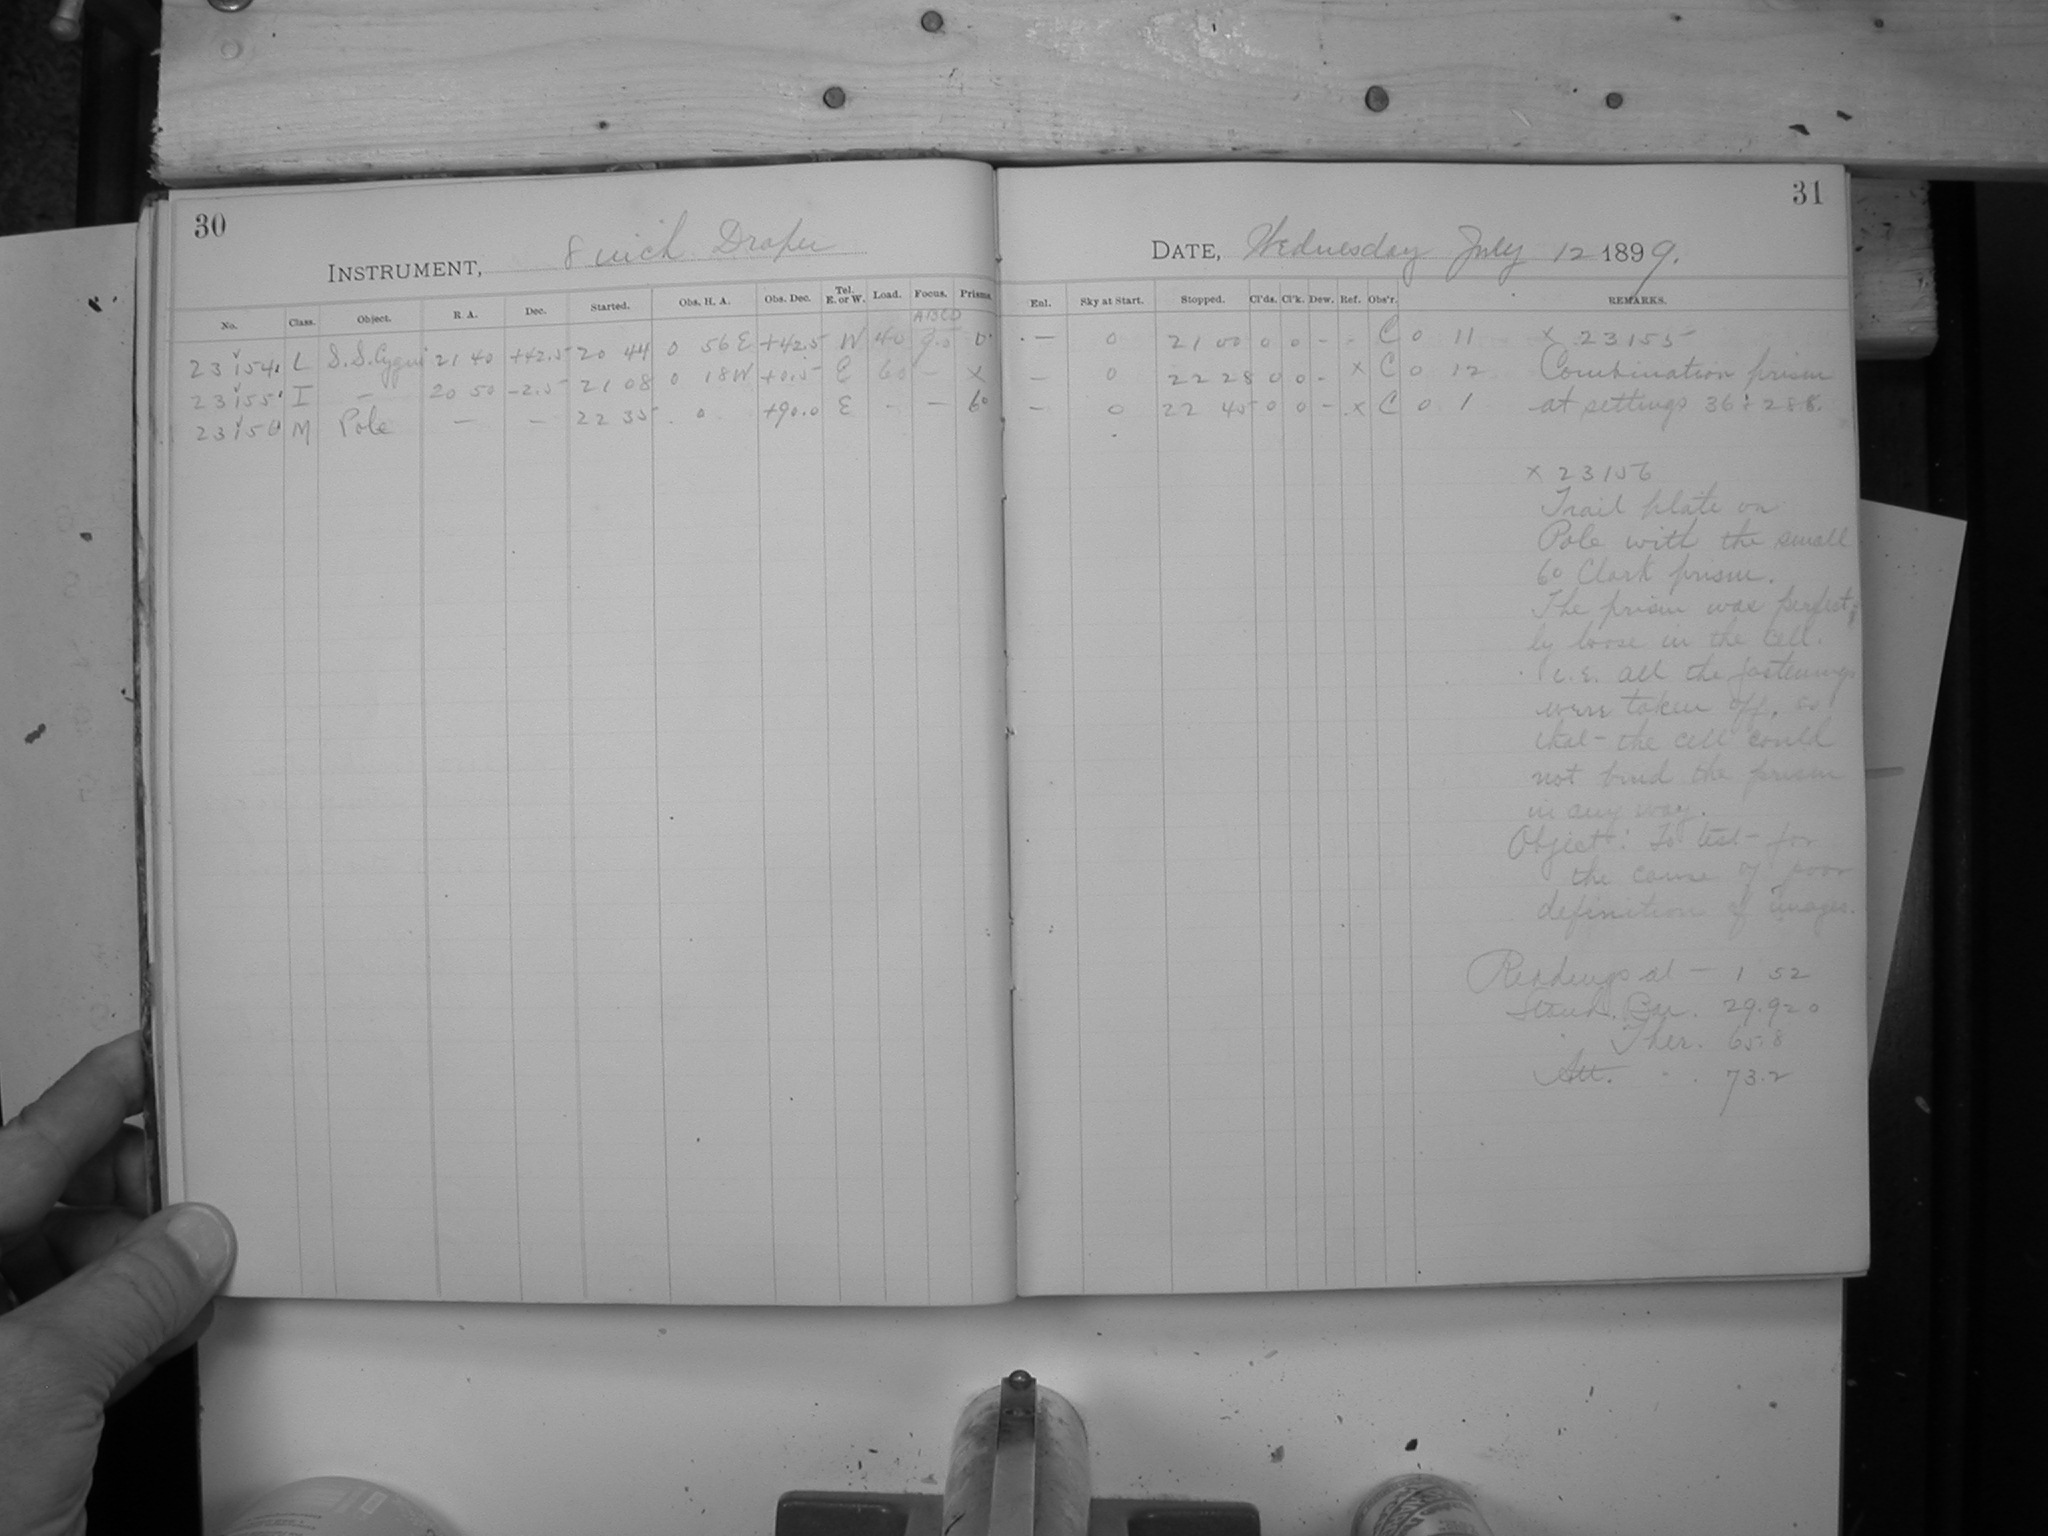 30
INSTRUMENT, 8 inch Draper
No. Class. Object. R A. Dec. Started. Obs. H. A. Obs. Dec. Tel. E. or W. Load. Focus. Prisms.
ABCD
23154 L S.S. Cygni 21 40 +42.5 20 44 0 56 E +42.5 W 40 9.5 0
23155 I — 20 50 -2.5 21 08 0 18 W +0.5 E 60 — X
23156 M Pole — — 22 35 0 +90.0 E - — 60
31
DATE, Wednesday July 12 1899.
Enl. Sky at Start. Stopped. Cl'ds. Cl'k. Dew. Ref. Obs'r. REMARKS.
— 0 21 00 0 0 - - C 0 11 x 23155
— 0 22 28 0 0 - x C 0 12 Combination prism
— 0 22 45 0 0 - x C 0 1 at settings 36 & 288.
x 23156
Trail plate on
Pole with the small
60 Clark prism.
The prism was perfect-
ly loose in the cell.
i.e. all the fastenings
were taken off, so
that the cell could
not bind the prism
in any way.
Object: To test for
the cause of poor
definition of images.
Readings at — 1 52
Stand. Bar. 29.920
Ther. 65.8
Att. " 73.2